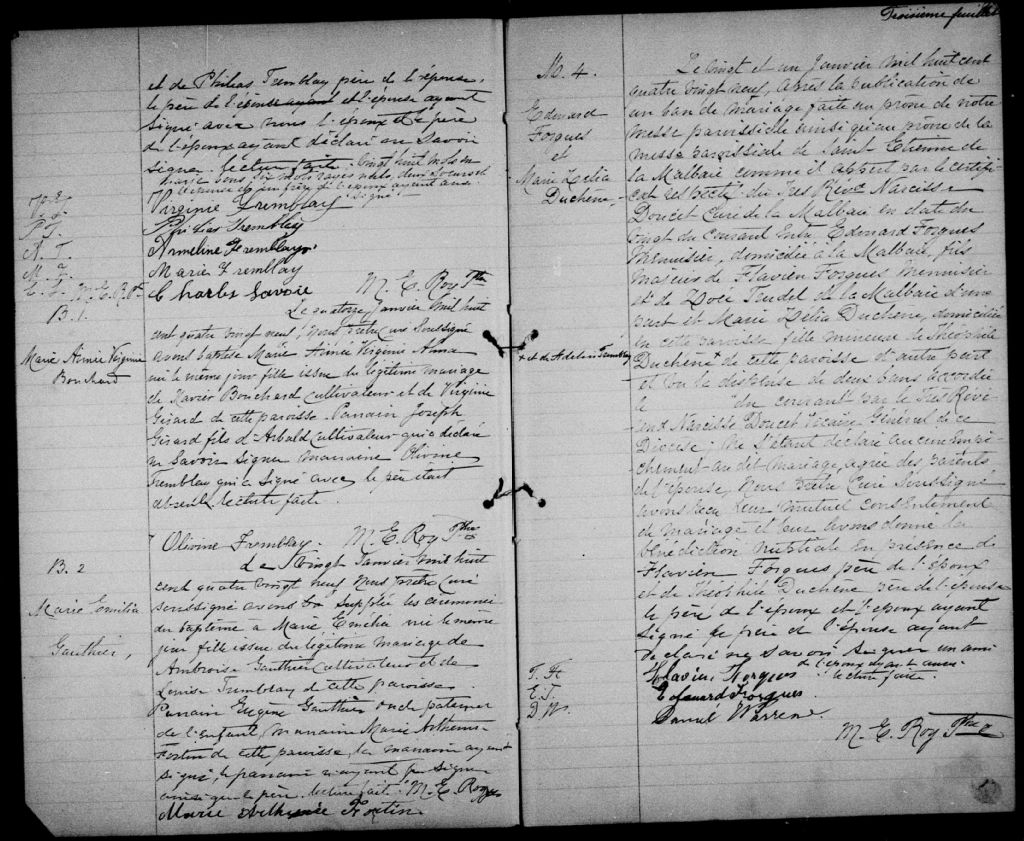 et de Phileas Tremblay père de l'épouse,
le père de l'épouse ayant et l'épouse ayant
signé avec nous l'époux et le père
de l'époux ayant déclaré ne savoir
signer. lecture faite. vingt huit mots
mots rayés nuls,
de l'époux ayant aussi
signé.
V. T.
Virginie Tremblay
P. T.
Phileas Tremblay
A. T.
Armeline Tremblay
M. T.
Marie Tremblay
C. S. M. E. R. Ptre
Charles Savoie M. E. Roy Ptre
B. 1.
Marie Aimée Virginie
Bouchard
Le quatorze Janvier mil huit
cent quatre vingt neuf, Nous Prêtre Curé soussigné
avons baptisé Marie Aimée Virginie Anna
née le même jour fille issue du légitime mariage
de Xavier Bouchard cultivateur et de Virginie
Girard de cette paroisse. Parrain Joseph
Girard fils d'Arbald cultivateur qui a déclaré
ne savoir signer marraine Olivine
Tremblay qui a signé avec le père était
absent. lecture faite.
Olivine Tremblay. M. E. Roy Ptre
B. 2
Marie Emilia
Gauthier,
Le vingt Janvier mil huit
cent quatre vingt neuf Nous prêtre curé
soussigné avons suppléé les cérémonies
du baptême a Marie Emelia née le même
jour fille issue du légitime mariage de
Ambroise Gauthier cultivateur et de
Louise Tremblay de cette paroisse
Parrain Eugène Gauthier oncle paternel
de l'enfant, Marraine Marie Arthemise
Fortin de cette paroisse, la marraine ayant
signé, le parrain n'ayant pu signer
ainsi que le père. lecture faite. M. E. Roy Ptre
Marie Fortin
Troisième feuillet
No. 4.
Edouard
Forgues
et
Marie Zélia
Duchène,
Le vingt et un Janvier mil huit cent
quatre vingt neuf, Après la publication de
un ban de mariage faite au prône de notre
messe paroissiale ainsi qu'au prône de la
messe paroissiale de Saint Etienne de
la Malbaie comme il appert par le certifi-
cat du Très Révd Narcisse
Doucet Curé de la Malbaie en date du
vingt du courant Entre Edouard Forgues
Menuisier, domicilié à la Malbaie, fils
majeur de Flavien Forgues menuisier
et de Zoée Trudel de la Malbaie d'une
part et Marie Zélia Duchène, domiciliée
en cette paroisse fille mineure de Théophile
+ et de Adelaïde Tremblay
Duchène + de cette paroisse d'autre part
et vu la dispense de deux bans accordée
le " du courant par le Très Révé-
rend Narcisse Doucet Vicaire Général de ce
Diocèse. Ne s'étant déclaré aucun empê-
chement au dit mariage, agrée des parents
de l'épouse, Nous Prêtre Curé Soussigné
avons reçu leur mutuel consentement
de mariage et leur avons donné la
bénédiction nuptiale en présence de
Flavien Forgues père de l'époux
et de Théophile Duchène père de l'épouse
le père de l'époux et l'époux ayant
signé le père et l'épouse ayant
déclaré ne savoir signer un ami
de l'époux ayant aussi
F. F.
Flavien Forgues. lecture faite.
E. F.
Edouard Forgues
D. W.
Daniel Warren.
M. E. Roy Ptre